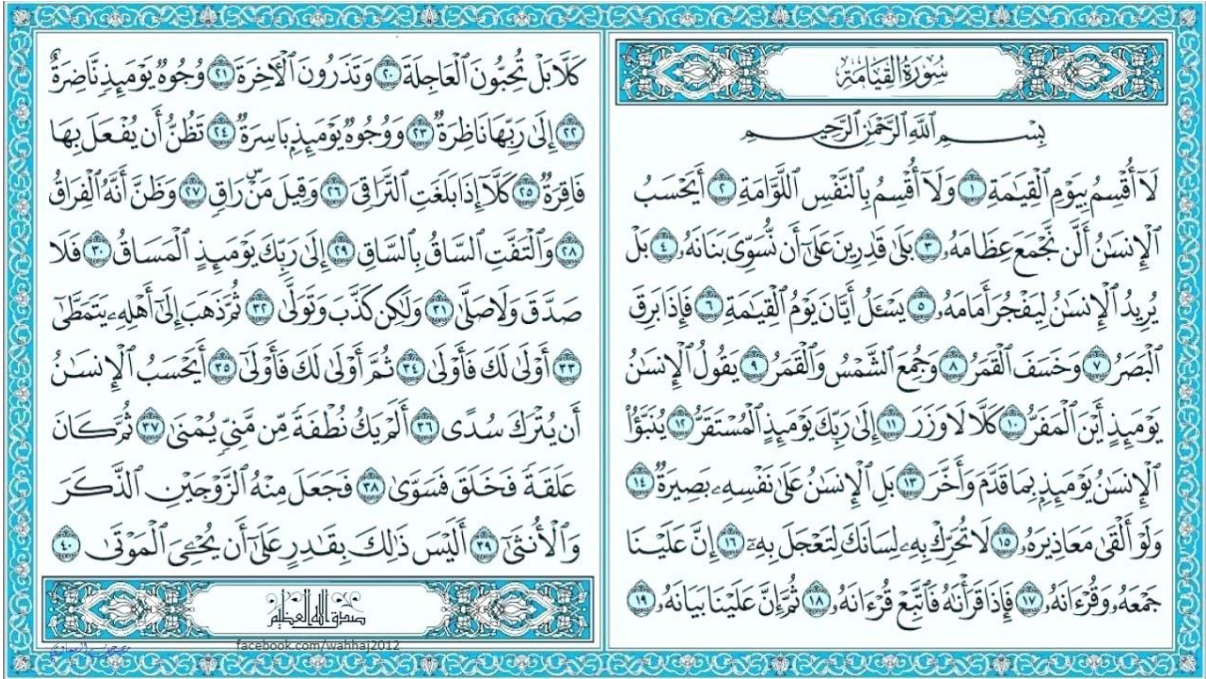 سُورَةُ القِيَامَةِ
بِسْمِ ٱللَّهِ ٱلرَّحْمَٰنِ ٱلرَّحِيمِ
لَآ أُقْسِمُ بِيَوْمِ ٱلْقِيَٰمَةِ ١ وَلَآ أُقْسِمُ بِٱلنَّفْسِ ٱللَّوَّامَةِ ٢ أَيَحْسَبُ
ٱلْإِنسَٰنُ أَلَّن نَّجْمَعَ عِظَامَهُۥ ٣ بَلَىٰ قَٰدِرِينَ عَلَىٰٓ أَن نُّسَوِّىَ بَنَانَهُۥ ٤ بَلْ
يُرِيدُ ٱلْإِنسَٰنُ لِيَفْجُرَ أَمَامَهُۥ ٥ يَسْـَٔلُ أَيَّانَ يَوْمُ ٱلْقِيَٰمَةِ ٦ فَإِذَا بَرِقَ
ٱلْبَصَرُ ٧ وَخَسَفَ ٱلْقَمَرُ ٨ وَجُمِعَ ٱلشَّمْسُ وَٱلْقَمَرُ ٩ يَقُولُ ٱلْإِنسَٰنُ
يَوْمَئِذٍ أَيْنَ ٱلْمَفَرُّ ١٠ كَلَّا لَا وَزَرَ ١١ إِلَىٰ رَبِّكَ يَوْمَئِذٍ ٱلْمُسْتَقَرُّ ١٢ يُنَبَّؤُا۟
ٱلْإِنسَٰنُ يَوْمَئِذٍۭ بِمَا قَدَّمَ وَأَخَّرَ ١٣ بَلِ ٱلْإِنسَٰنُ عَلَىٰ نَفْسِهِۦ بَصِيرَةٌ ١٤
وَلَوْ أَلْقَىٰ مَعَاذِيرَهُۥ ١٥ لَا تُحَرِّكْ بِهِۦ لِسَانَكَ لِتَعْجَلَ بِهِۦٓ ١٦ إِنَّ عَلَيْنَا
جَمْعَهُۥ وَقُرْءَانَهُۥ ١٧ فَإِذَا قَرَأْنَٰهُ فَٱتَّبِعْ قُرْءَانَهُۥ ١٨ ثُمَّ إِنَّ عَلَيْنَا بَيَانَهُۥ ١٩
كَلَّا بَلْ تُحِبُّونَ ٱلْعَاجِلَةَ ٢٠ وَتَذَرُونَ ٱلْءَاخِرَةَ ٢١ وُجُوهٌ يَوْمَئِذٍ نَّاضِرَةٌ
٢٢ إِلَىٰ رَبِّهَا نَاظِرَةٌ ٢٣ وَوُجُوهٌ يَوْمَئِذٍۭ بَاسِرَةٌ ٢٤ تَظُنُّ أَن يُفْعَلَ بِهَا
فَاقِرَةٌ ٢٥ كَلَّآ إِذَا بَلَغَتِ ٱلتَّرَاقِىَ ٢٦ وَقِيلَ مَنْ رَاقٍ ٢٧ وَظَنَّ أَنَّهُ ٱلْفِرَاقُ
٢٨ وَٱلْتَفَّتِ ٱلسَّاقُ بِٱلسَّاقِ ٢٩ إِلَىٰ رَبِّكَ يَوْمَئِذٍ ٱلْمَسَاقُ ٣٠ فَلَا
صَدَّقَ وَلَا صَلَّىٰ ٣١ وَلَٰكِن كَذَّبَ وَتَوَلَّىٰ ٣٢ ثُمَّ ذَهَبَ إِلَىٰٓ أَهْلِهِۦ يَتَمَطَّىٰٓ
٣٣ أَوْلَىٰ لَكَ فَأَوْلَىٰ ٣٤ ثُمَّ أَوْلَىٰ لَكَ فَأَوْلَىٰٓ ٣٥ أَيَحْسَبُ ٱلْإِنسَٰنُ
أَن يُتْرَكَ سُدًى ٣٦ أَلَمْ يَكُ نُطْفَةً مِّن مَّنِىٍّ يُمْنَىٰ ٣٧ ثُمَّ كَانَ
عَلَقَةً فَخَلَقَ فَسَوَّىٰ ٣٨ فَجَعَلَ مِنْهُ ٱلزَّوْجَيْنِ ٱلذَّكَرَ
وَٱلْأُنثَىٰٓ ٣٩ أَلَيْسَ ذَٰلِكَ بِقَٰدِرٍ عَلَىٰٓ أَن يُحْـِۧىَ ٱلْمَوْتَىٰ ٤٠
صدق الله العظيم
facebook.com/wahhaj2012